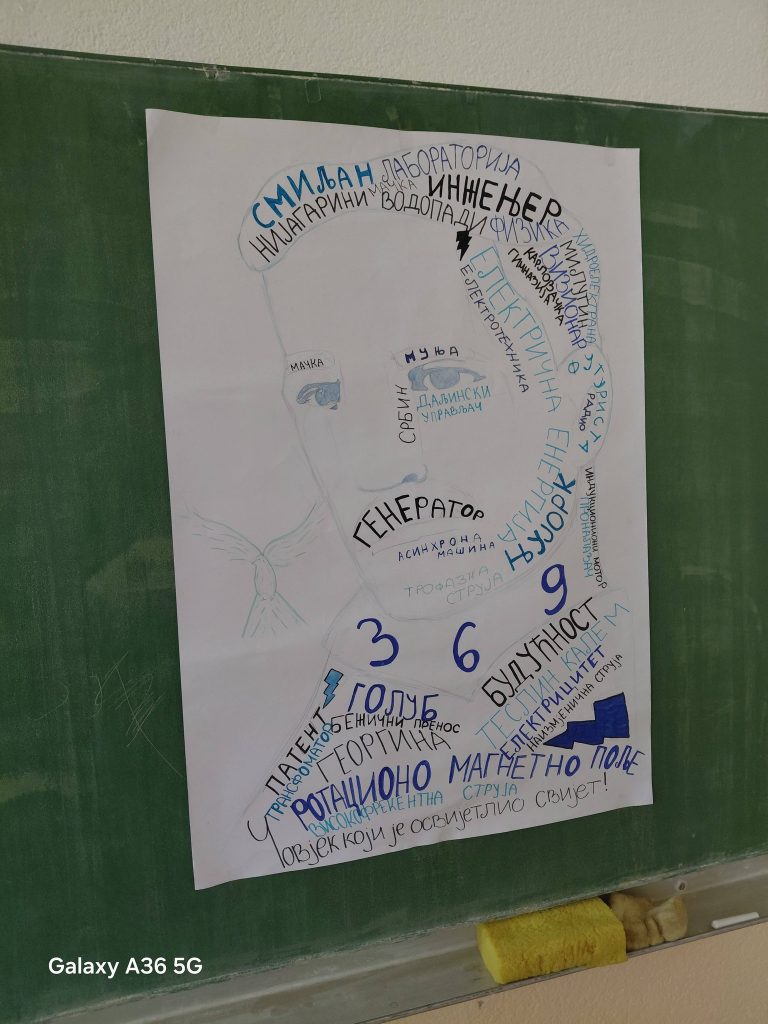 СМИЉАН
ЛАБОРАТОРИЈА
МАЧКА
ИНЖЕЊЕР
НИЈАГАРИНИ ВОДОПАДИ
ФИЗИКА
ХИДРОЕЛЕКТРАНА
МИЛУТИН
ВИЗИОНАР
КАРЛОВАЧКА
ГИМНАЗИЈА
ЕЛЕКТРИЧНА ЕНЕРГИЈА
ЕЛЕКТРОТЕХНИКА
МАЧКА
МУЊА
ДАЉИНСКИ
УПРАВЉАЧ
СРБИН
РАДИО
ИНДУКЦИОНИ МОТОР
ПРОНАЛАЗАЧ
ЊУЈОРК
ГЕНЕРАТОР
АСИНХРОНА
МАШИНА
ТРОФАЗНА
СТРУЈА
3 6 9
БУДУЋНОСТ
ТЕСЛИН КАЛЕМ
ЕЛЕКТРИЦИТЕТ
НАИЗМЈЕНИЧНА СТРУЈА
ГОЛУБ
БЕЖИЧНИ ПРЕНОС
ГЕОРГИНА
ПАТЕНТ
ТРАНСФОМАТОР
РОТАЦИОНО МАГНЕТНО ПОЉЕ
ВИСОКОФРЕКЕНТНА СТРУЈА
Човјек који је освијетлио свијет!
Galaxy A36 5G